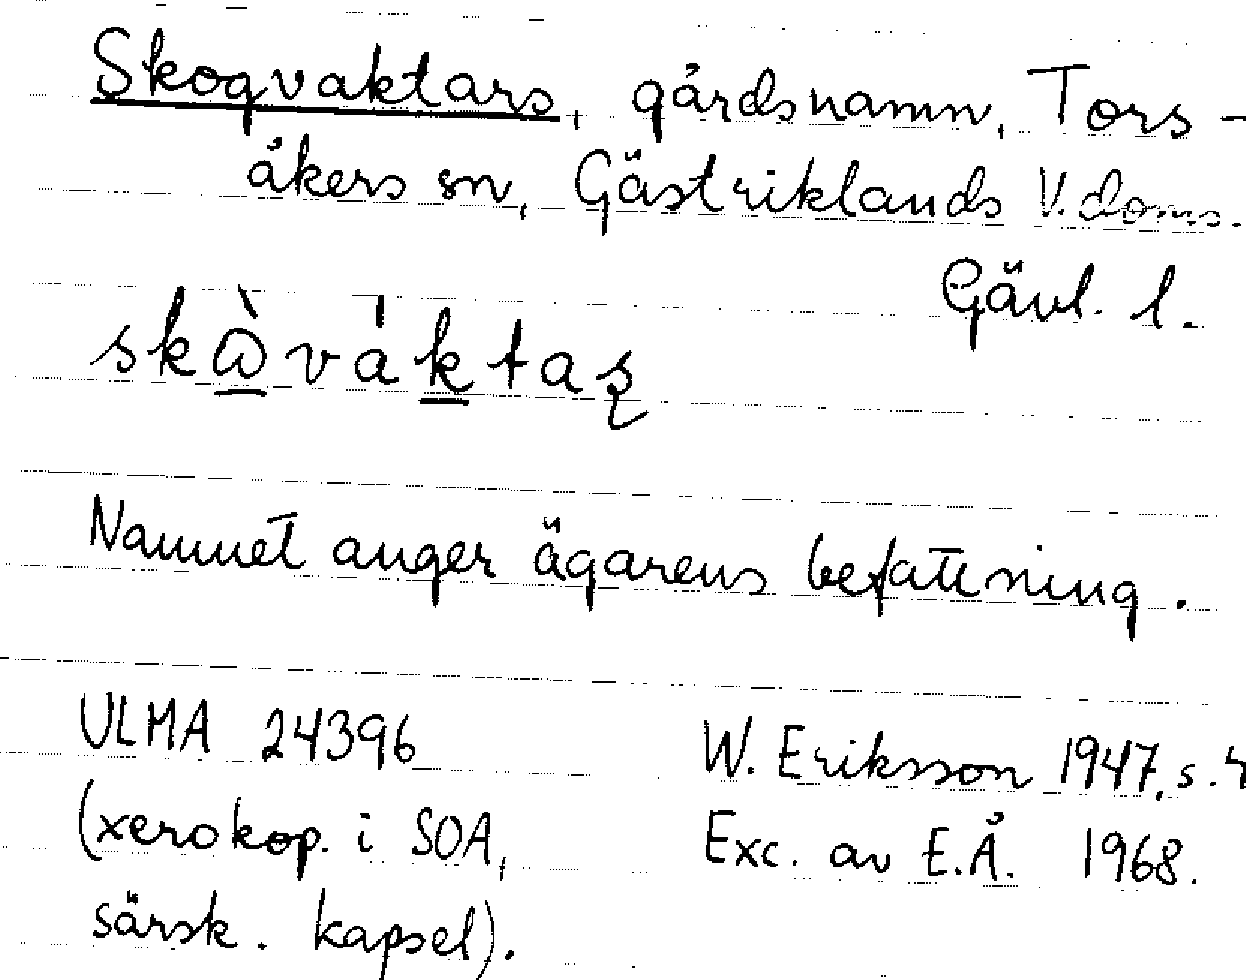 Skogvaktars, gårdsnamn, Tors-
åkers sn, Gästriklands V. doms.
Gävl. l.
skὼváktaʂ
Namnet anger ägarens befattning.
ULMA 24396 W. Eriksson 1947, s. 4
(xerokop. i SOA, Exc. av E.Å. 1968.
särsk. kapsel).